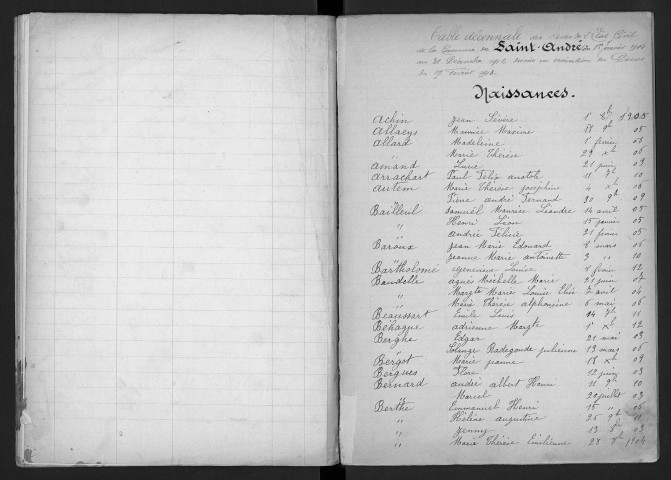 Table décennale des Actes de l'Etat Civil
de la Commune de Saint-André du 1er janvier 1903
au 31 Décembre 1912 dressée en exécution du Décret
du
Naissances.
Achin Jean Sévère 1er 8bre 1905
Allaeys Maurice Maxime 18 9bre 05
Allard Madeleine 1er février 06
" Marie Thérèse 29 Xbre 06
Amand Lucie 21 juin 03
Arrachart Paul Félix Anatole 11 7bre 10
Autem Marie Thérèse Joséphine 4 Xbre 06
" Pierre André Fernand 30 9bre 09
Bailleul Samuël Maurice Léandre 14 avril 05
" Henri Léon 15 janvier 05
" Andrée Félicie 21 février 05
Baroux Jean Marie Edouard 8 mars 06
" Jeanne Marie Antoinette 3 " 10
Bartholomé Geneviève Louise 8 février 12
Baudelle Agnès Michelle Marie 21 juin 07
" Margte Marie Louise 7 avril 04
" Marie Thérèse Alphonsine 6 mai 06
Beaussart Emile Louis 14 7bre 11
Béhague Adrienne Margte 1er Xbre 12
Berghe Edgar 21 mai 03
" Solange Radegonde Julienne 13 mars 06
Bergot Marie Jeanne 18 Xbre 09
Bergues Flore 12 juin 03
Bernard André Albert Henri 11 9bre 10
" Marcel 20 juillet 03
Berthe Emmanuel Henri 15 " 05
" Hélène Augustine 25 9bre 11
" Jenny 13 8bre 03
" Marie Thérèse Emilienne 23 8bre 1904